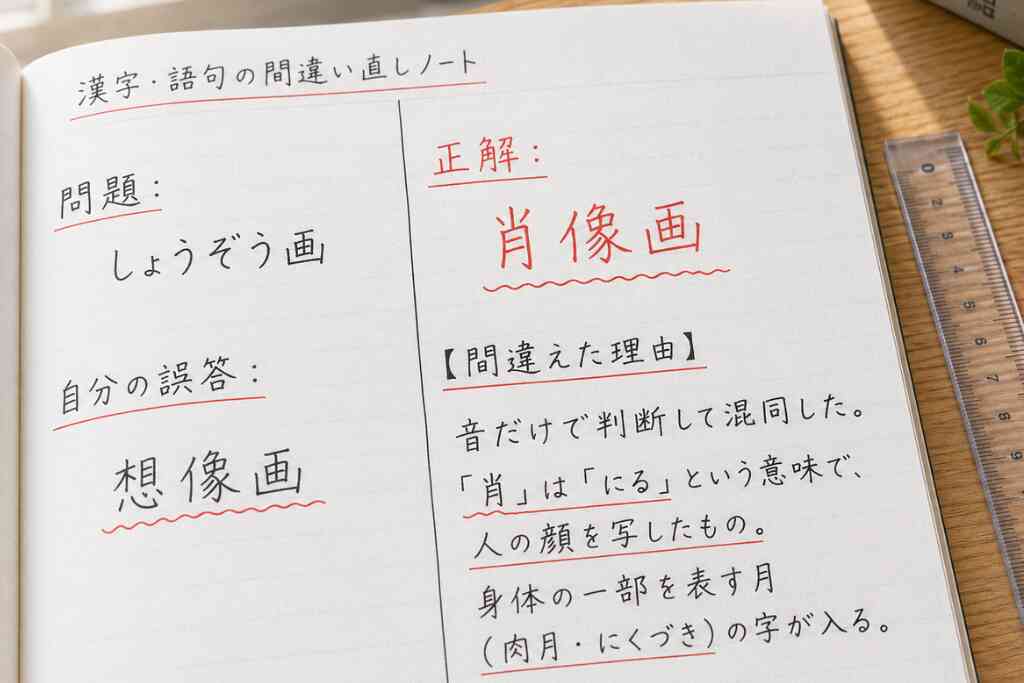 漢字・語句の間違い直しノート
問題：
しょうぞう画
自分の誤答：
想像画
正解：
肖像画
【間違えた理由】
音だけで判断して混同した。
「肖」は「にる」という意味で、
人の顔を写したもの。
身体の一部を表す月
(肉月・にくづき)の字が入る。
0 2 3 4 5 6 7 8 9